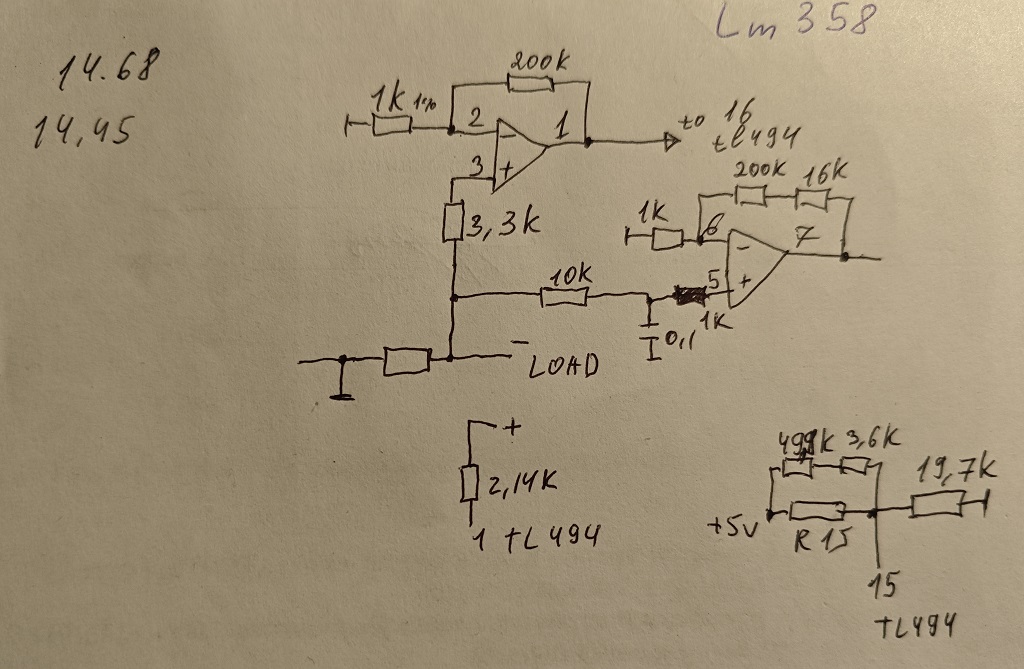 Lm 358
14.68
200k
1k 1%
2
1
to 16
tl494
14,45
3
200k
16k
3,3k
1k
6
7
10k
5
1k
0,1
LOAD
+
2,14k
1 tL494
3,6k
19,7k
+5v
R 15
15
tL494